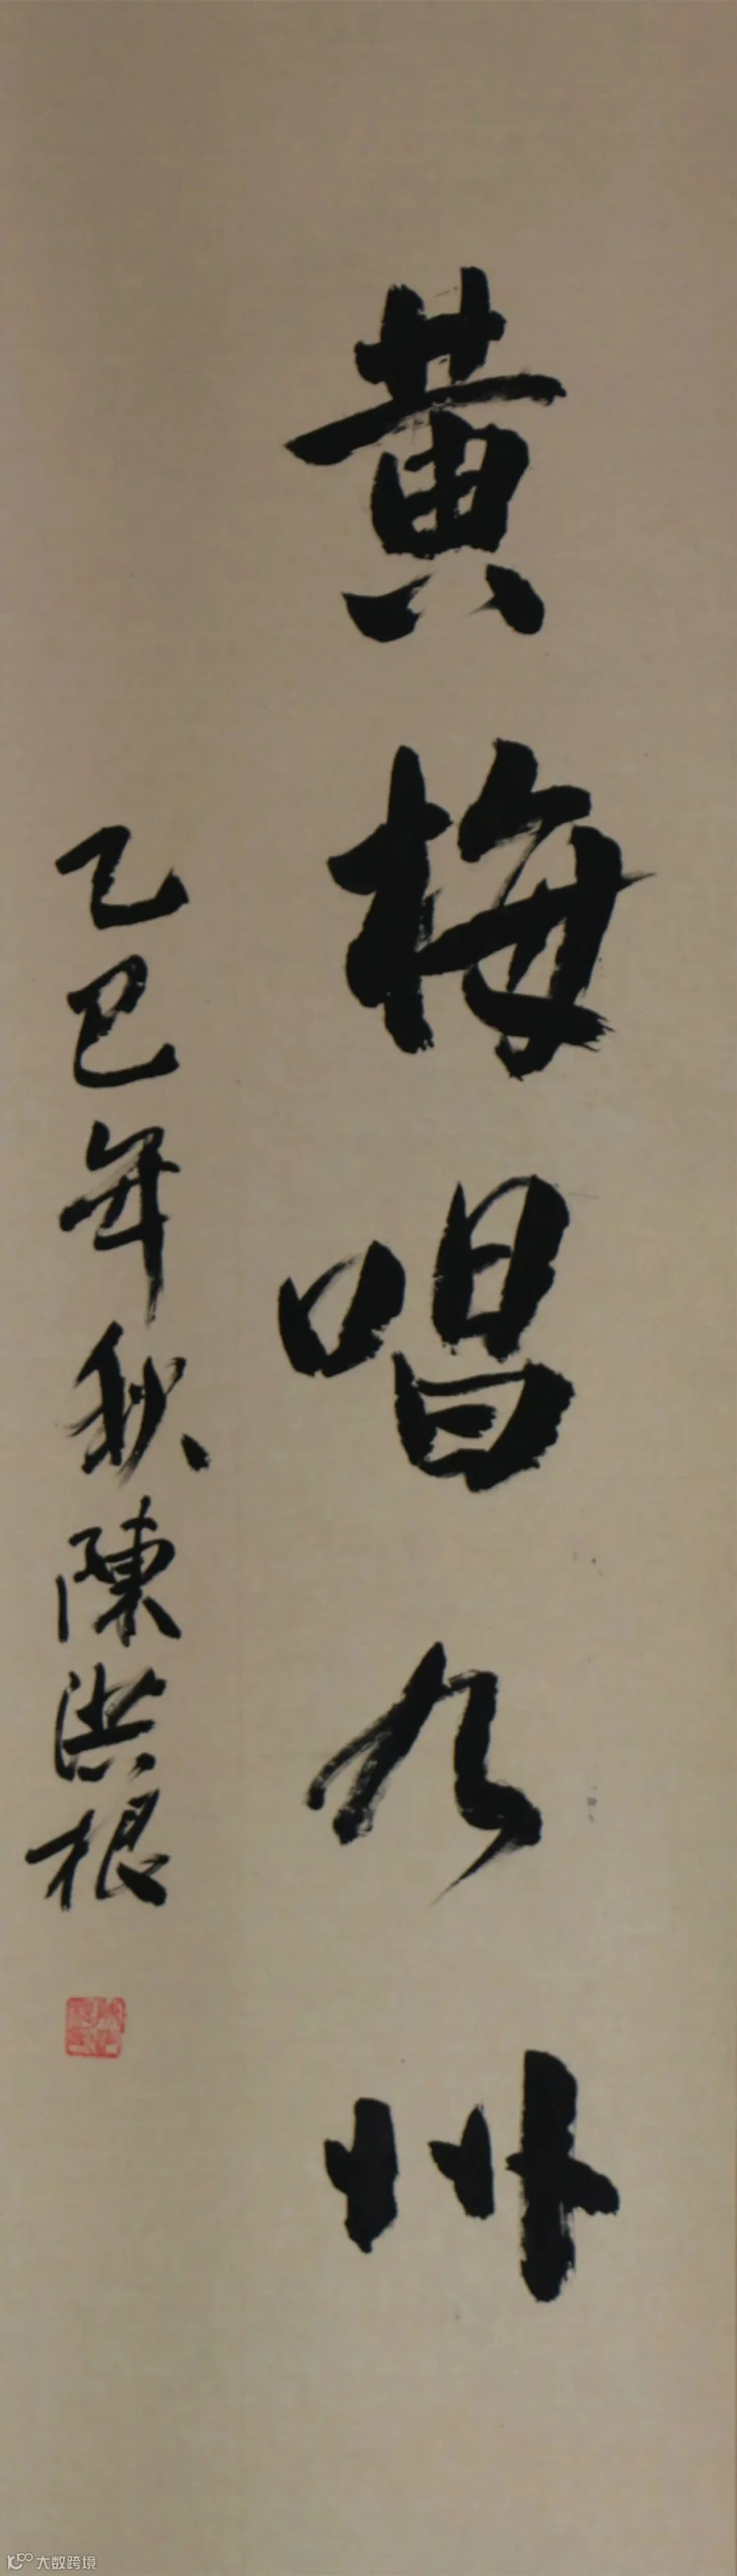 黄梅唱九州
乙巳年秋陳洪根
大数跨境